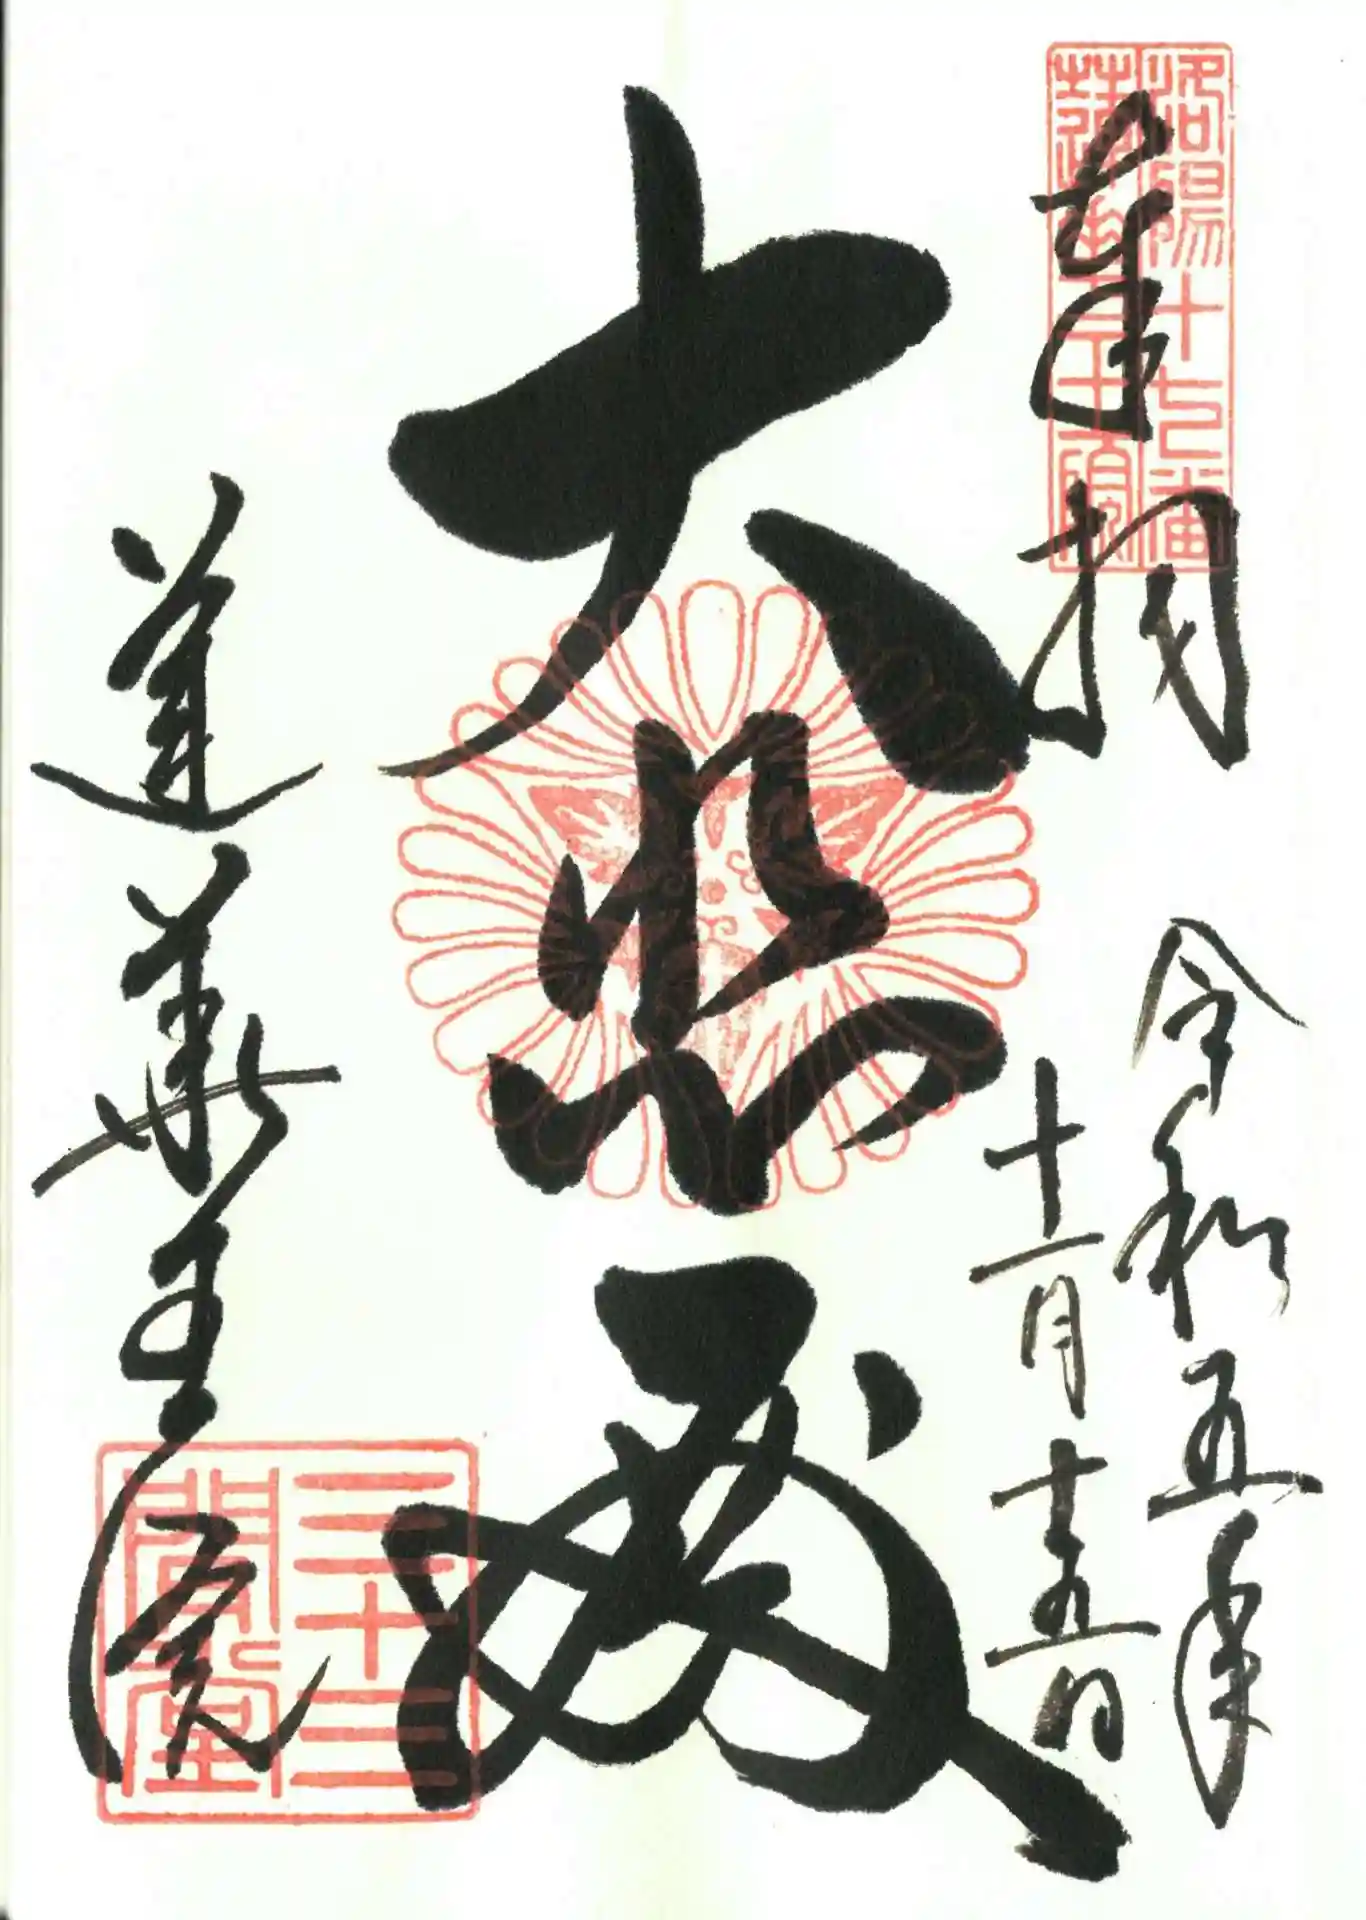 洛陽十七番
蓮華王院
奉拝
令和五年
十一月十五日
大悲殿
蓮華王院
三十三
間堂